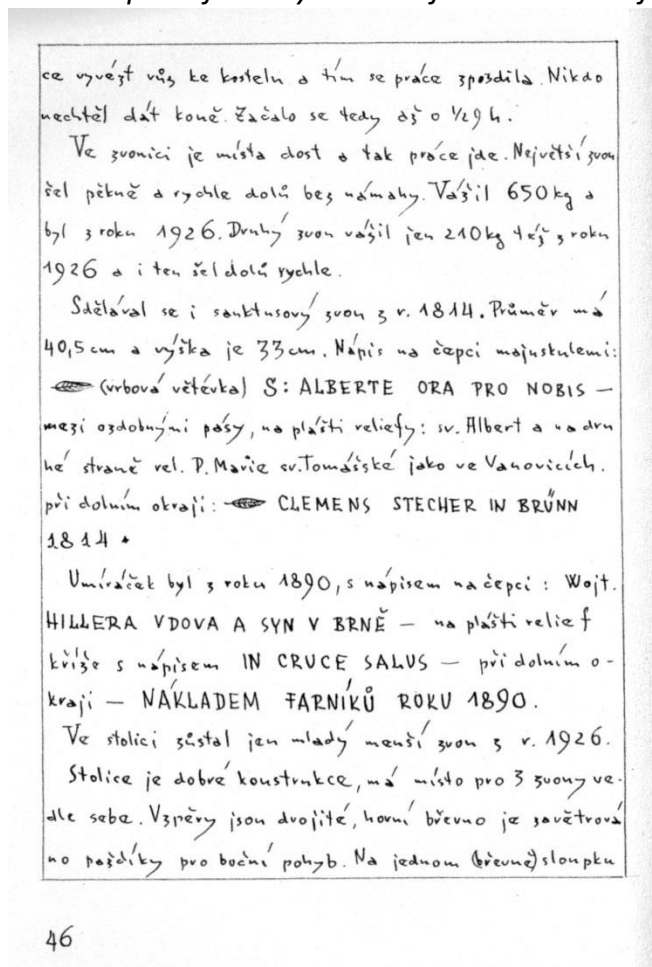 ce vyvézt vůz ke kostelu a tím se práce zpozdila. Nikdo
nechtěl dát koně. Začalo se tedy až o 1/29 h.
Ve zvonici je místa dost a tak práce jde. Největší zvon
šel pěkně a rychle dolů bez námahy. Vážil 650 kg a
byl z roku 1926. Druhý zvon vážil jen 210 kg též z roku
1926 a i ten šel dolů rychle.
Sdělával se i sanktusový zvon z r. 1814. Průměr má
40,5 cm a výška je 33 cm. Nápis na čepci majuskulemi:
(vrbová větévka) S: ALBERTE ORA PRO NOBIS —
mezi ozdobnými pásy, na plášti reliefy: sv. Albert a na dru
hé straně rel. P. Marie sv. Tomášské jako ve Vanovicích.
při dolním okraji: CLEMENS STECHER IN BRÜNN
1814 •
Umíráček byl z roku 1890, s nápisem na čepci: Wojt.
HILLERA VDOVA A SYN V BRNĚ — na plášti relief
kříže s nápisem IN CRUCE SALUS — při dolním o-
kraji — NÁKLADEM FARNÍKŮ ROKU 1890.
Ve stolici zůstal jen mladý menší zvon z r. 1926.
Stolice je dobré konstrukce, má místo pro 3 zvony ve-
dle sebe. Vzpěry jsou dvojité, horní břevno je zavětrová
no paždíky pro boční pohyb. Na jednom (břevně) sloupku
46